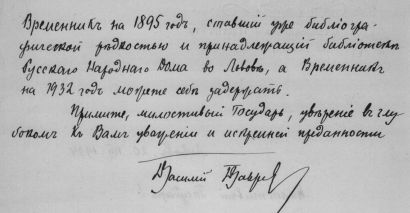 Временникъ на 1895 годъ, ставшій уже библіогра-
фической рѣдкостью и принадлежащій библіотекѣ
Русскаго Народнаго Дома во Львовѣ, а Временникъ
на 1932 годъ можете себѣ задержать.
Примите, милостивый Государь, увѣреніе въ глу-
бокомъ къ Вамъ уваженіи и искренней преданности
Василій